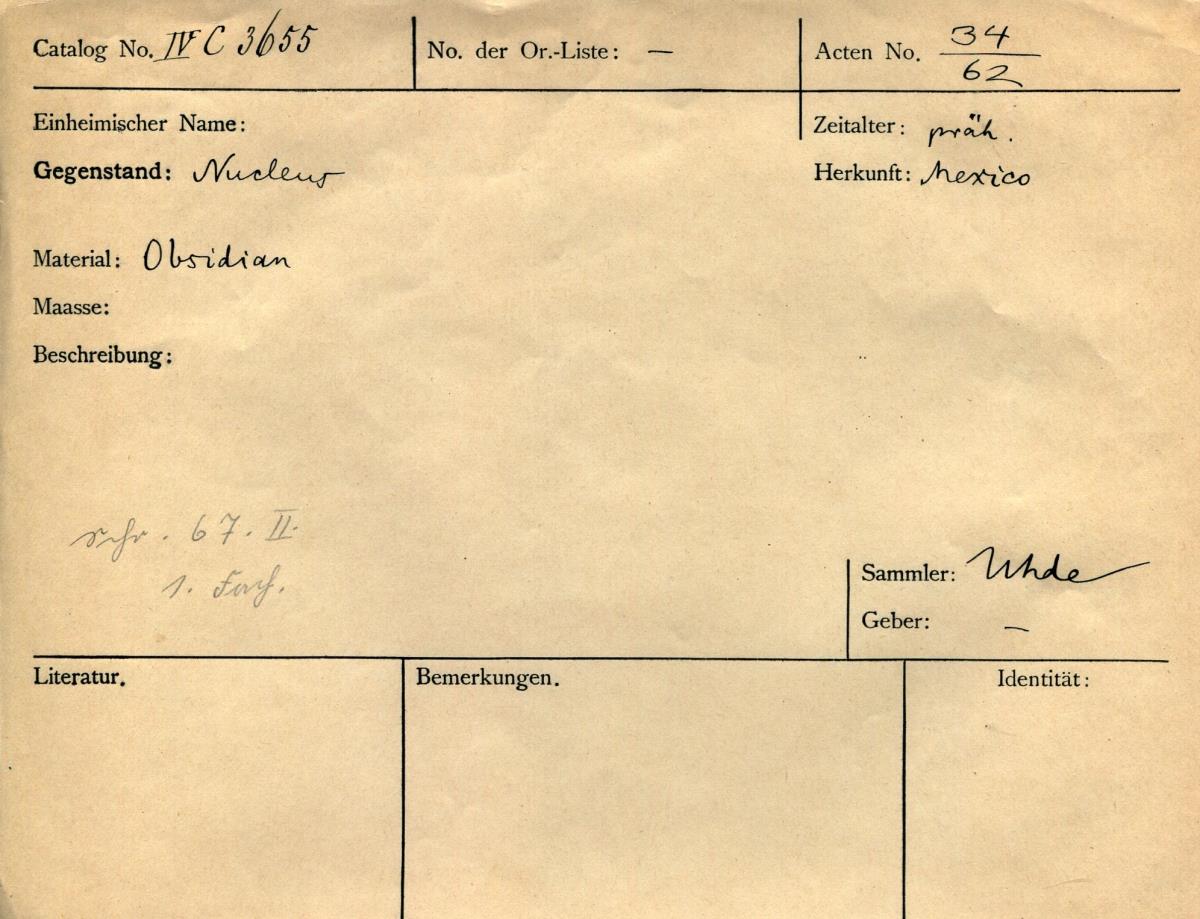 Catalog No. IV C 3655
No. der Or.-Liste: —
Acten No. 34
62
Einheimischer Name:
Zeitalter: präh.
Gegenstand: Nucleus
Herkunft: Mexico
Material: Obsidian
Maasse:
Beschreibung:
Schr. 67. II.
1. Fach.
Sammler: Uhde
Geber: —
Literatur.
Bemerkungen.
Identität: